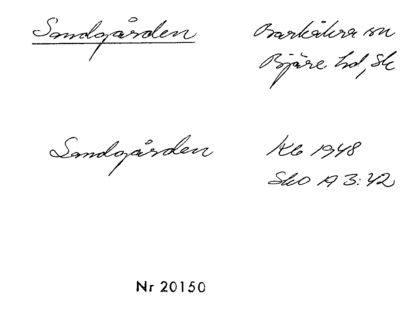 Sandgården
Barkåkra sn
Bjäre hd, Sk
Sandgården
Kb 1948
SkO A 3:42
Nr 20150